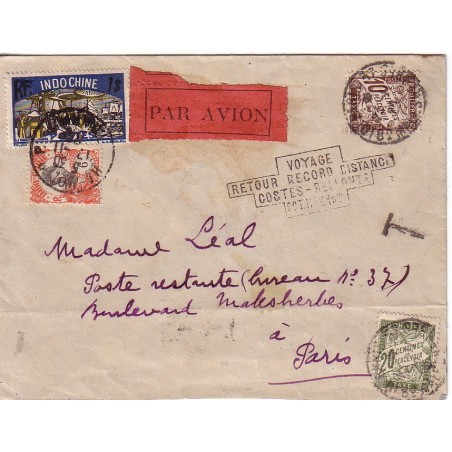 RF INDOCHINE 1$
PAR AVION
10
VOYAGE
RETOUR RECORD DISTANCE
COSTES-BELLONTE
Madame Léal
Poste restante (bureau Nº 37)
Boulevard Malesherbes
à
Paris
T
20 CENTIMES
A PERCEVOIR